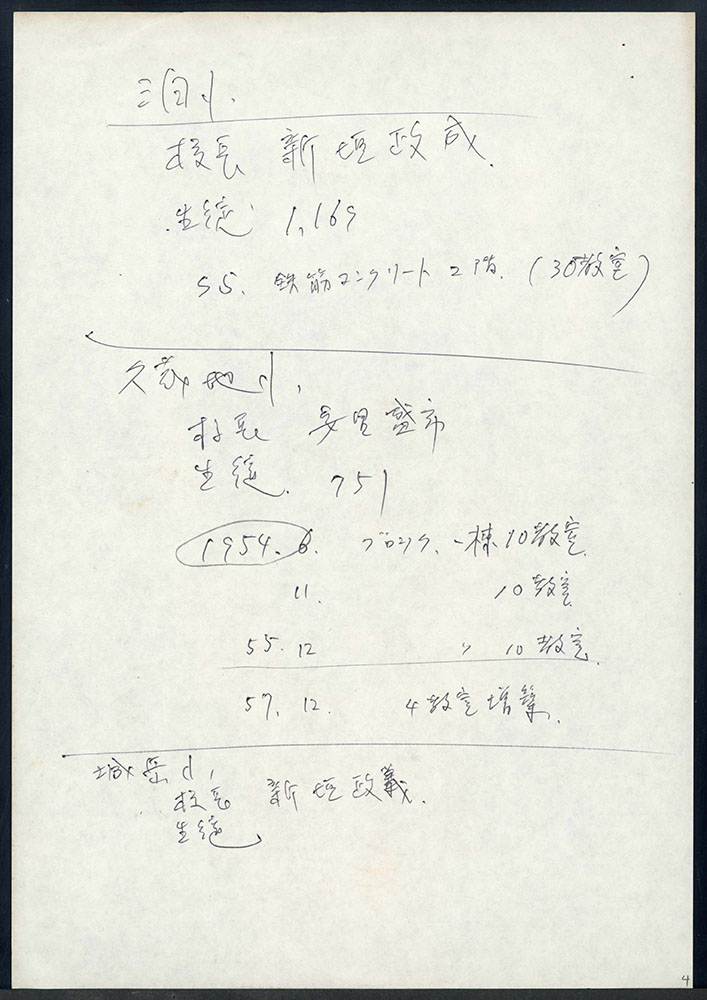 泊小、
校長 新垣政成.
生徒 1,169
55. 鉄筋コンクリート2階. (30教室)
久茂地小、
校長 安里盛市
生徒. 751
1954.6. ブロック、一棟10教室.
11. 10教室
55.12 〃 10教室.
57.12. 4教室増築.
城岳小、
校長 新垣政義.
生徒
4